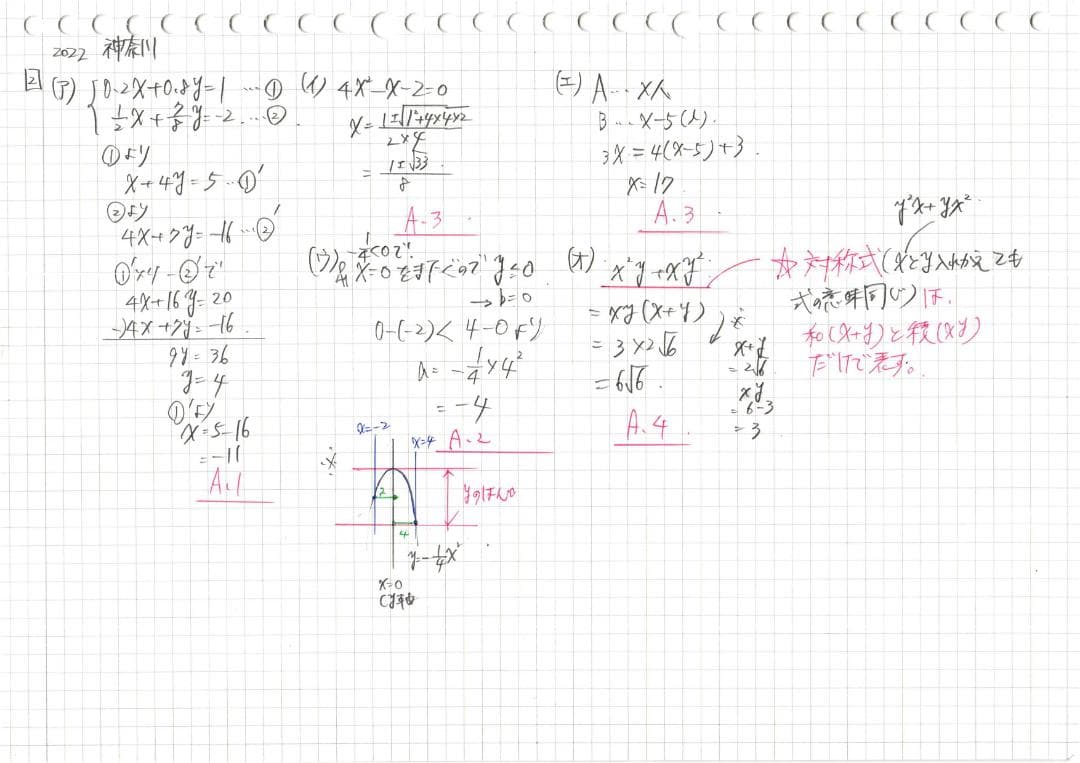 2022 神奈川
2
(ア) 0.2x+0.8y=1 …①
1/2x+7/8y=-2 …②
①より
x+4y=5 …①'
②より
4x+7y=-16 …②'
①'×4-②'で
4x+16y=20
-)4x+7y=-16
9y=36
y=4
①'より
x=5-16
=-11
A.1
(イ) 4x²-x-2=0
x=1±√1²+4×4×2/2×4
=1±√33/8
A.3
(ウ) -1/4<0で
x=0をまたぐので y≦0
→b=0
0-(-2)<4-0より
a=-1/4×4²
=-4
A.2
x=-2
x=4
2
4
yのはんい
y=-1/4x²
x=0
(y軸
(エ) A…x人
B…x-5(人)
3x=4(x-5)+3
x=17
A.3
(オ) x²y+xy²
=xy(x+y)
=3×2√6
=6√6
A.4
※
x+y
=2√6
xy
=6-3
=3
y²x+yx²
☆対称式(xとy入れかえても
式の意味同じ)は、
和(x+y)と積(xy)
だけで表す。